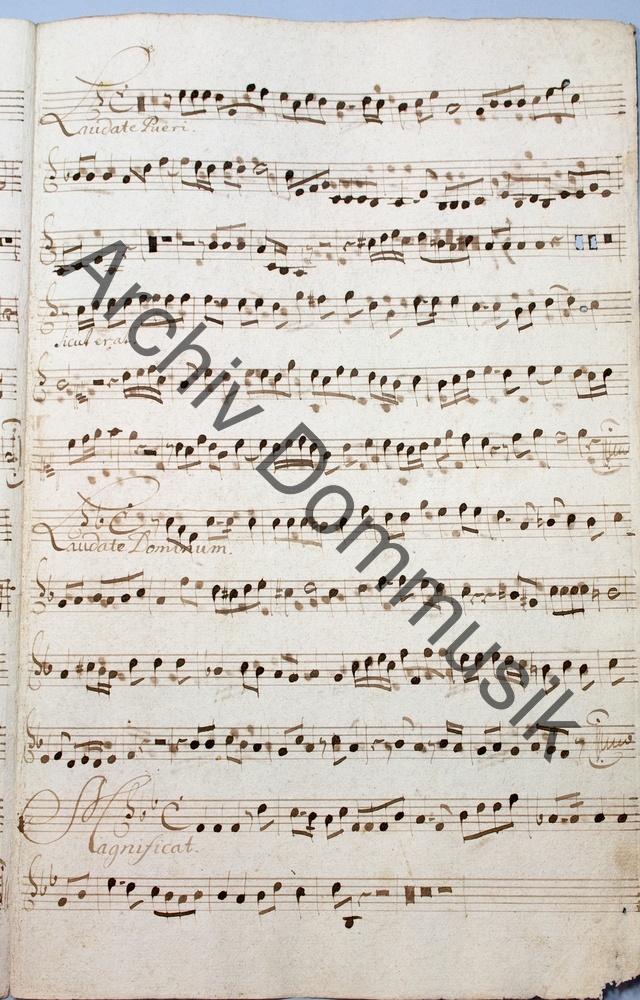 Laudate Pueri.
Sicut erat
Laudate Dominum.
Magnificat.
Archiv Dommusik